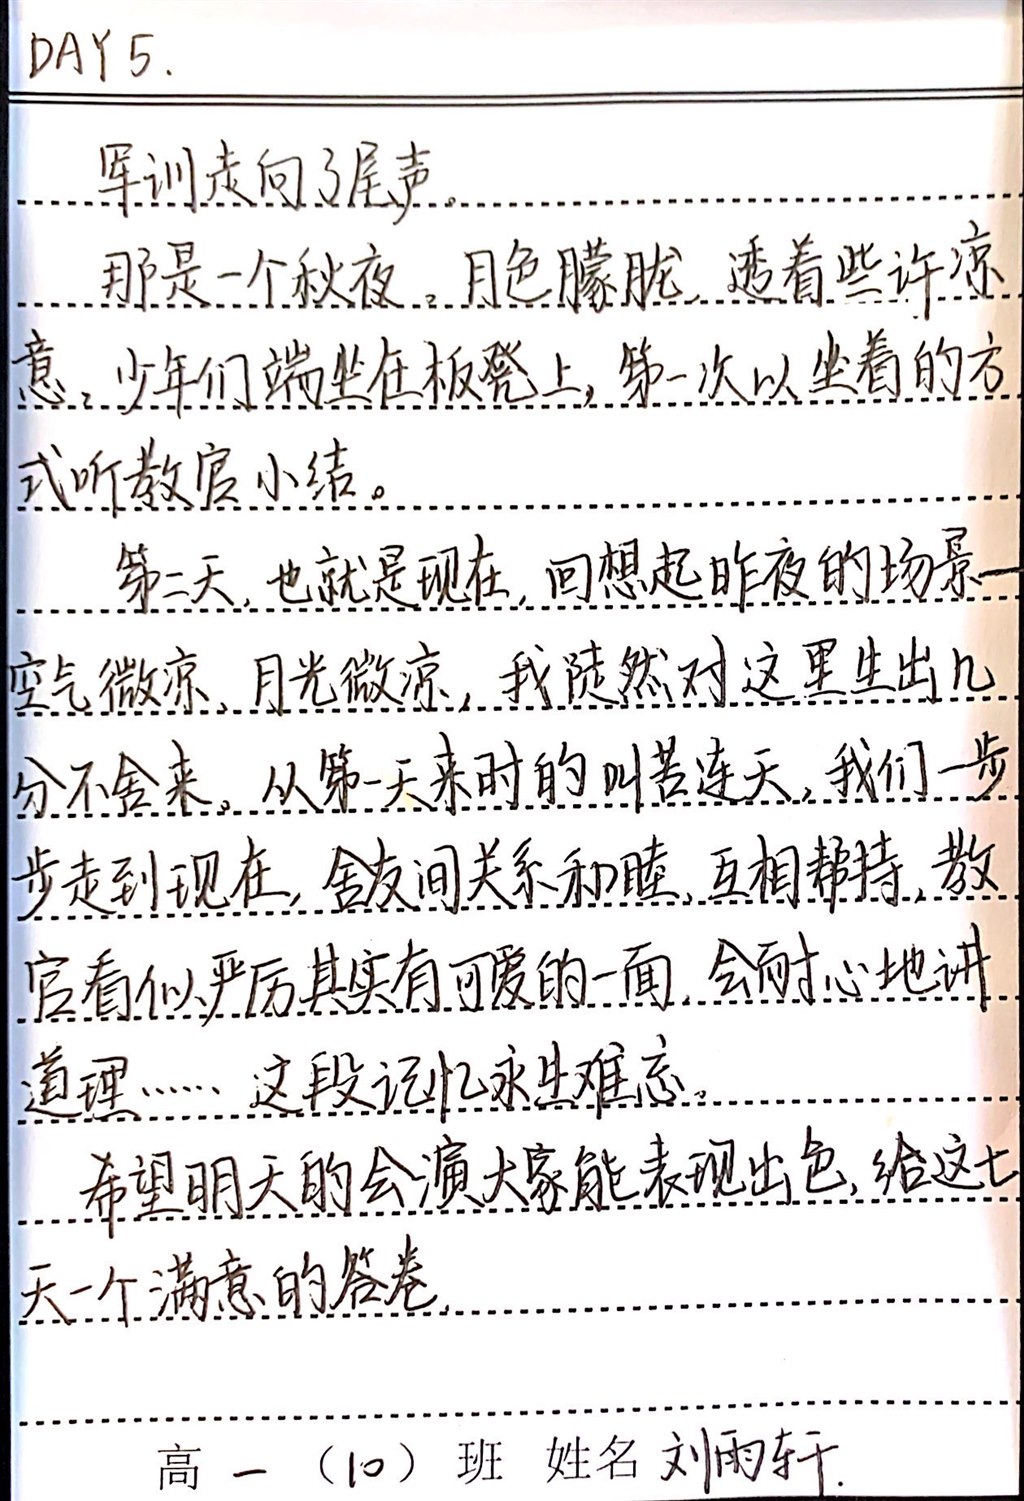 DAY 5.
军训走向了尾声。
那是一个秋夜。月色朦胧,透着些许凉
意。少年们端坐在板凳上,第一次以坐着的方
式听教官小结。
第二天,也就是现在,回想起昨夜的场景—
空气微凉、月光微凉,我陡然对这里生出几
分不舍来。从第一天来时的叫苦连天,我们一步
步走到现在,舍友间关系和睦、互相帮持,教
官看似严厉其实有可爱的一面,会耐心地讲
道理…… 这段记忆永生难忘。
希望明天的会演大家能表现出色,给这七
天一个满意的答卷.
高一（10）班 姓名 刘雨轩.